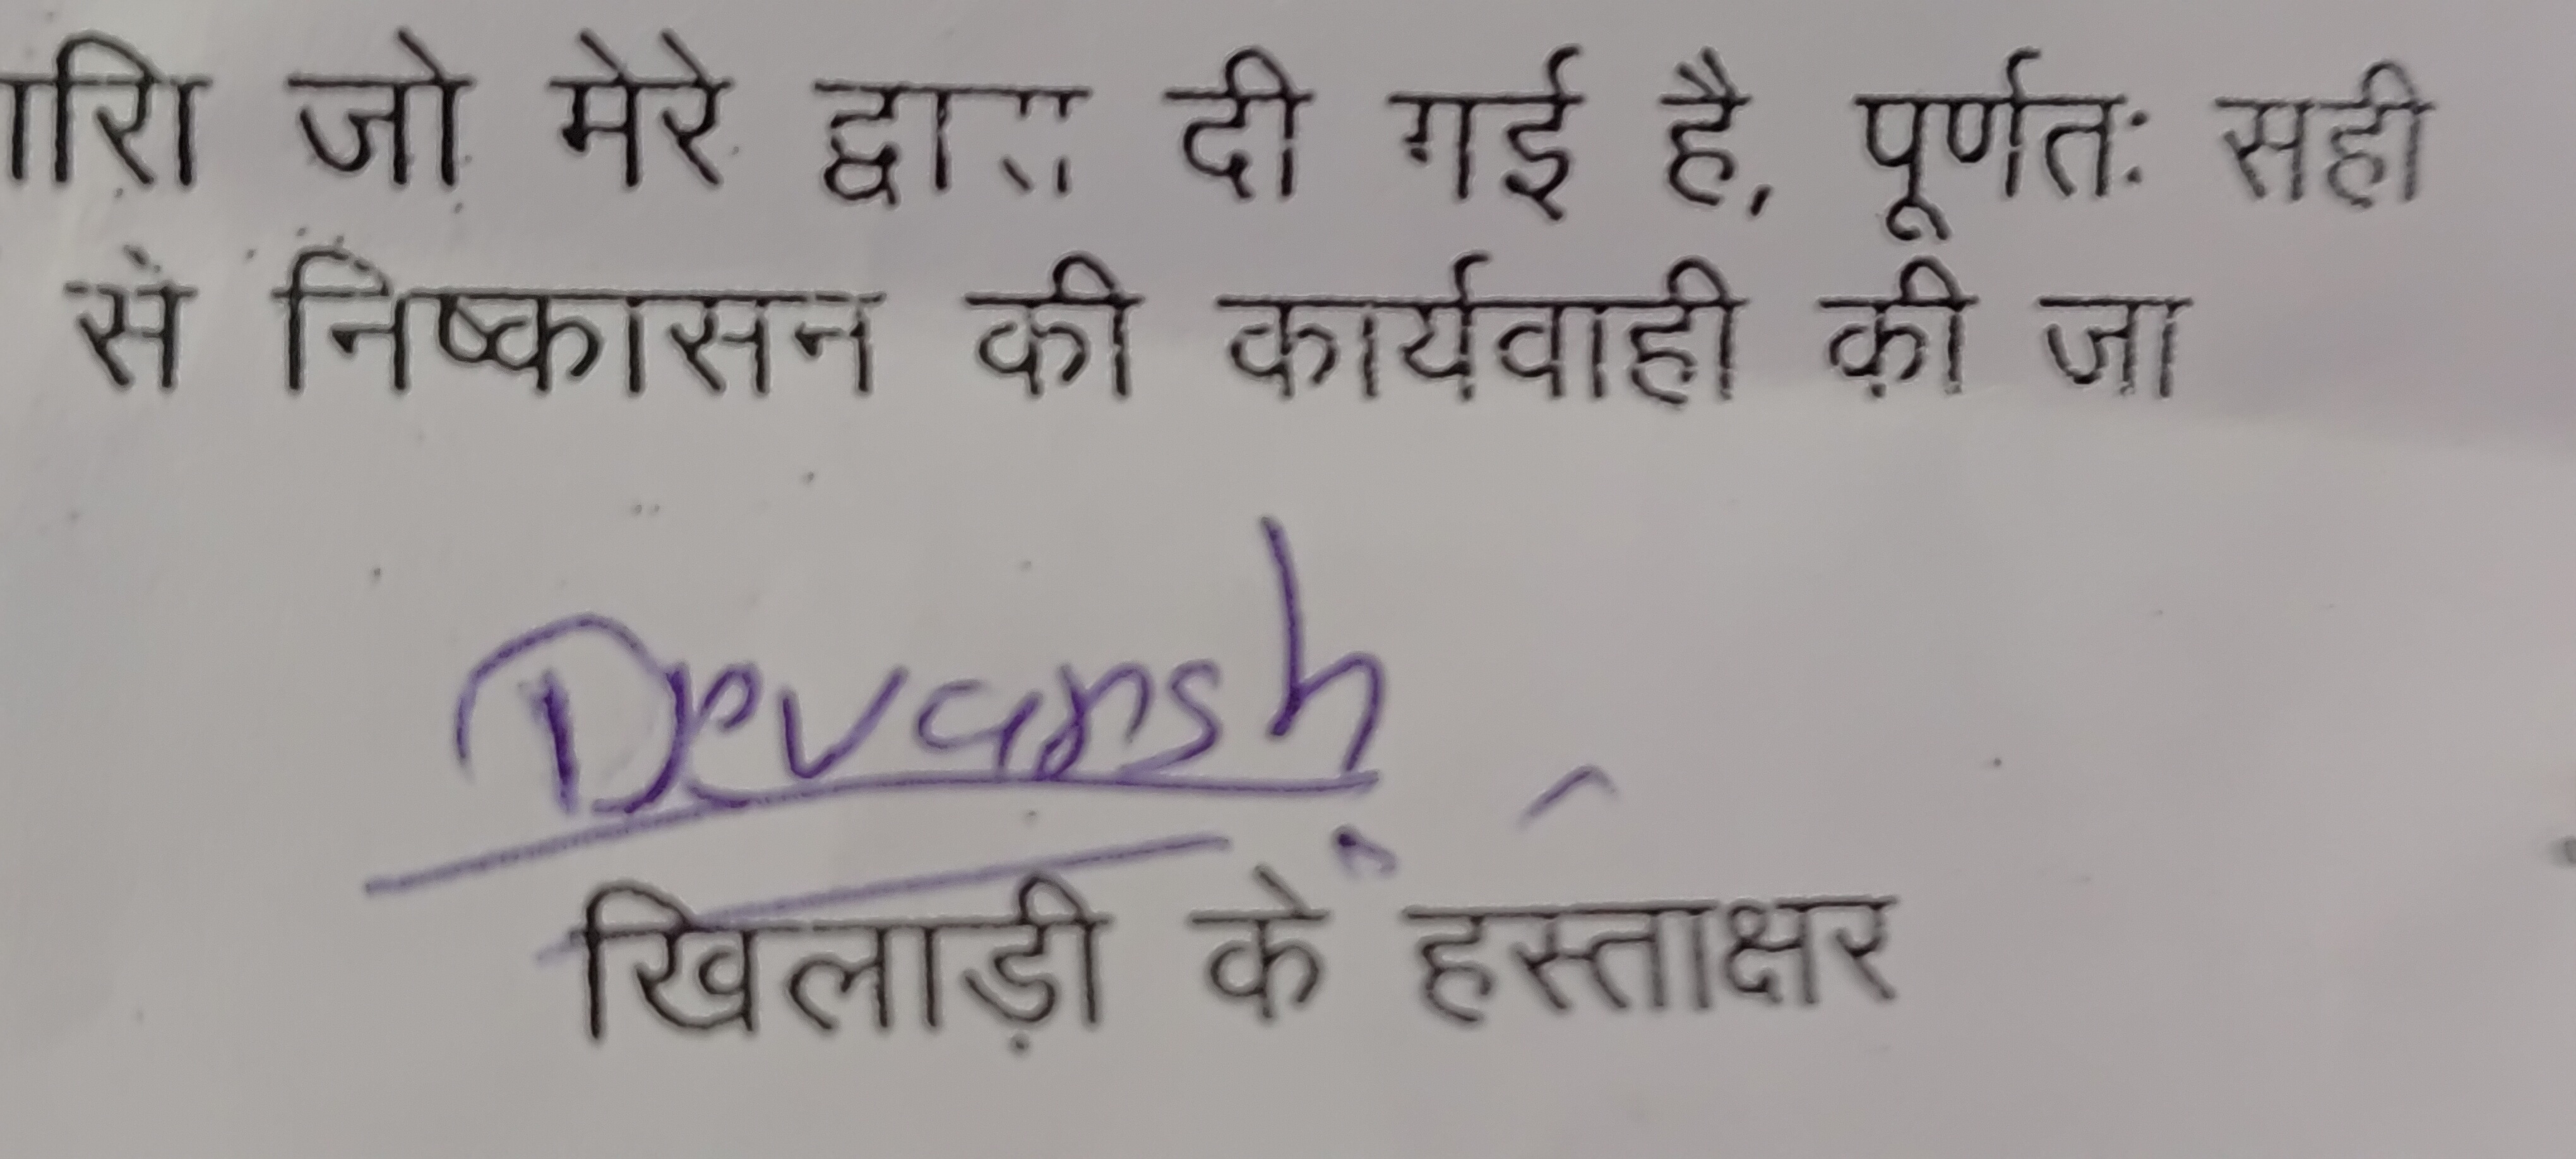 जो मेरे द्वारा दी गई है, पूर्णतः सही
से निष्कासन की कार्यवाही की जा
Devansh
खिलाड़ी के हस्ताक्षर